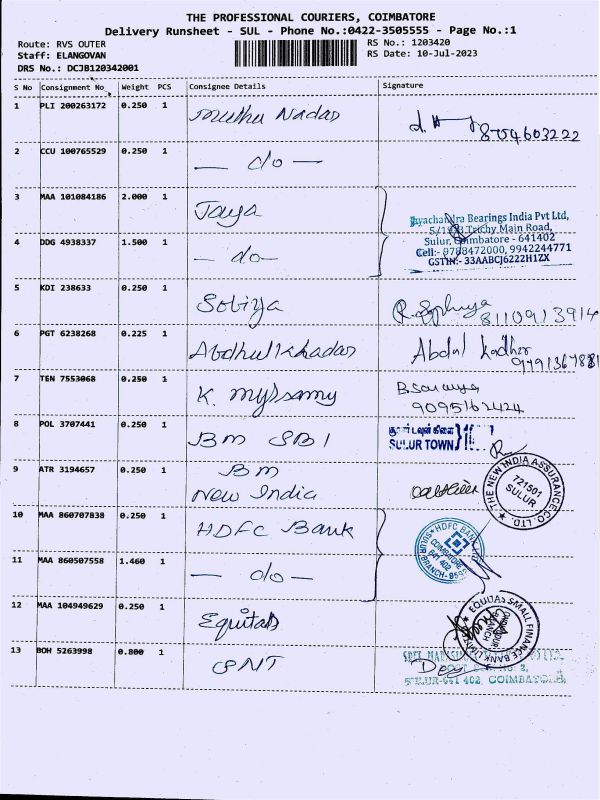 THE PROFESSIONAL COURIERS, COIMBATORE
Delivery Runsheet - SUL - Phone No.:0422-3505555 - Page No.:1
Route: RVS OUTER
RS No.: 1203420
Staff: ELANGOVAN
RS Date: 10-Jul-2023
DRS No.: DCJB120342001
S No Consignment No Weight PCS Consignee Details Signature
1 PLI 200263172 0.250 1 Muthu Nadar
8754603222
2 CCU 100765529 0.250 1 — do —
3 MAA 101084186 2.000 1 Jaya
Bearings India Pvt Ltd,
Trichy Main Road,
Sulur, Coimbatore - 641402
4 DDG 4938337 1.500 1 — do —
Cell:- 9788472000, 9942244771
GSTIN:- 33AABCJ6222H1ZX
5 KDI 238633 0.250 1 Sobiya
8110913914
6 PGT 6238268 0.225 1 Abdhul Khadar
Abdul Kadher
7 TEN 7553068 0.250 1 K. Myssamy
B. Saranya
9095162424
8 POL 3707441 0.250 1 BM SBI
சூலூர் டவுன் கிளை
SULUR TOWN
9 ATR 3194657 0.250 1 BM
New India
THE NEW INDIA ASSURANCE CO. LTD.
721501
SULUR
10 MAA 860707838 0.250 1 HDFC Bank
HDFC BANK
COIMBATORE
641 402
SULUR BRANCH
11 MAA 860507558 1.460 1 — do —
12 MAA 104949629 0.250 1 Equitas
EQUITAS SMALL FINANCE BANK
13 BOH 5263998 0.800 1 SNT
SULUR-641 402, COIMBATORE.